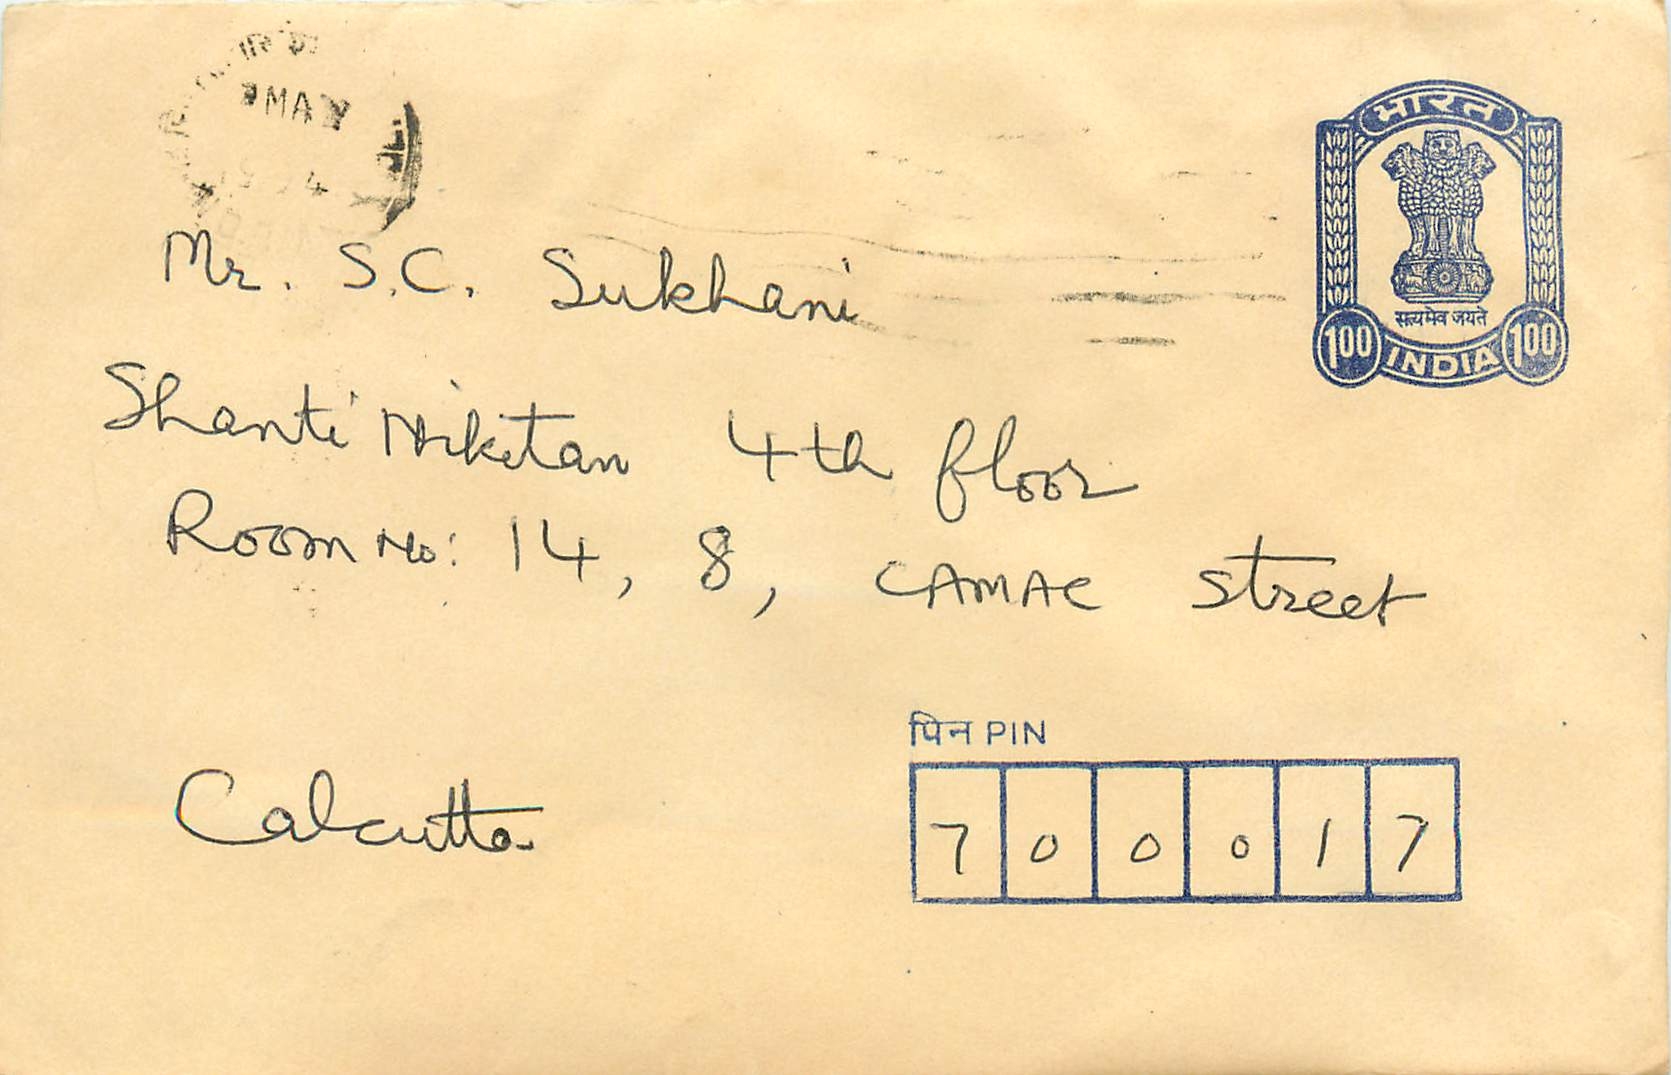 MAY
भारत
सत्यमेव जयते
1.00 INDIA 1.00
Mr. S.C. Sukhani
Shanti Niketan 4th floor
Room No: 14, 8, CAMAC Street
Calcutta
पिन PIN
700017